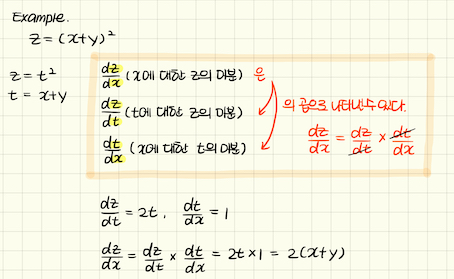 Example.
z = (x+y)²
z = t²
t = x+y
dz/dx (x에 대한 z의 미분) 은
dz/dt (t에 대한 z의 미분)
dt/dx (x에 대한 t의 미분)
의 곱으로 나타낼 수 있다.
dz/dx = dz/dt × dt/dx
dz/dt = 2t, dt/dx = 1
dz/dx = dz/dt × dt/dx = 2t × 1 = 2(x+y)